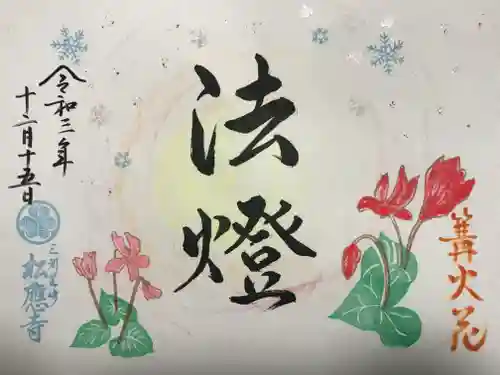 法燈
篝火花
令和三年
十二月十五日
松應寺